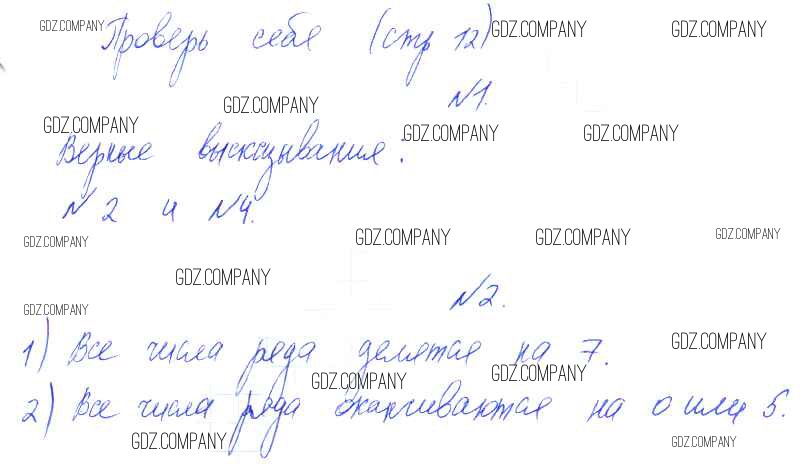 GDZ.COMPANY
Проверь себя (стр 12)
GDZ.COMPANY
GDZ.COMPANY
№1.
GDZ.COMPANY
GDZ.COMPANY
GDZ.COMPANY
GDZ.COMPANY
Верные высказывания:
№2 и №4.
GDZ.COMPANY
GDZ.COMPANY
GDZ.COMPANY
GDZ.COMPANY
GDZ.COMPANY
№2.
GDZ.COMPANY
1) Все числа ряда делятся на 7.
GDZ.COMPANY
GDZ.COMPANY
GDZ.COMPANY
2) Все числа ряда оканчиваются на 0 или 5.
GDZ.COMPANY
GDZ.COMPANY